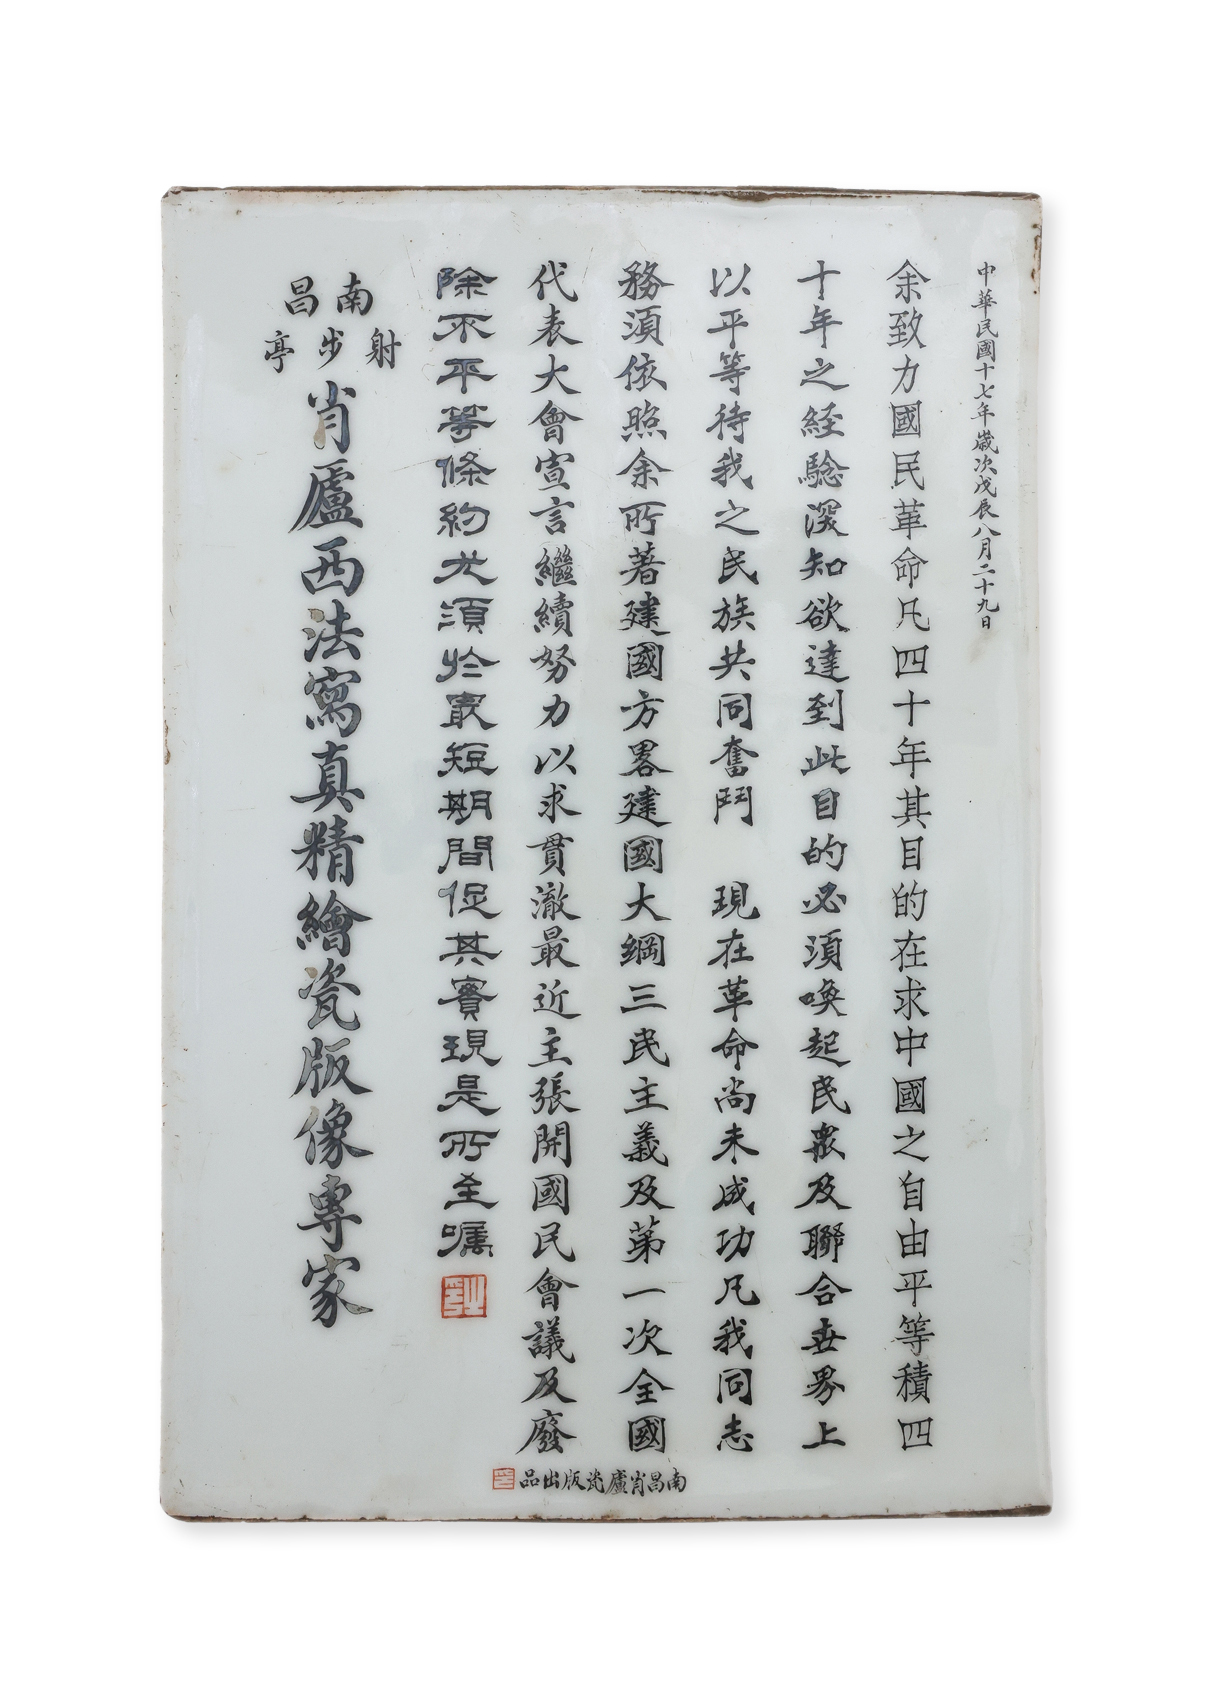 中華民國十七年歲次戊辰八月二十九日
余致力國民革命凡四十年其目的在求中國之自由平等積四
十年之経驗深知欲達到此目的必須喚起民衆及聯合世界上
以平等待我之民族共同奮鬥　現在革命尚未成功凡我同志
務須依照余所著建國方畧建國大綱三民主義及第一次全國
代表大會宣言繼續努力以求貫澈最近主張開國民會議及廢
除不平等條約尤須於最短期間促其實現是所至囑
南昌
射步亭
肖廬西法寫真精繪瓷版像專家
南昌肖廬瓷版出品